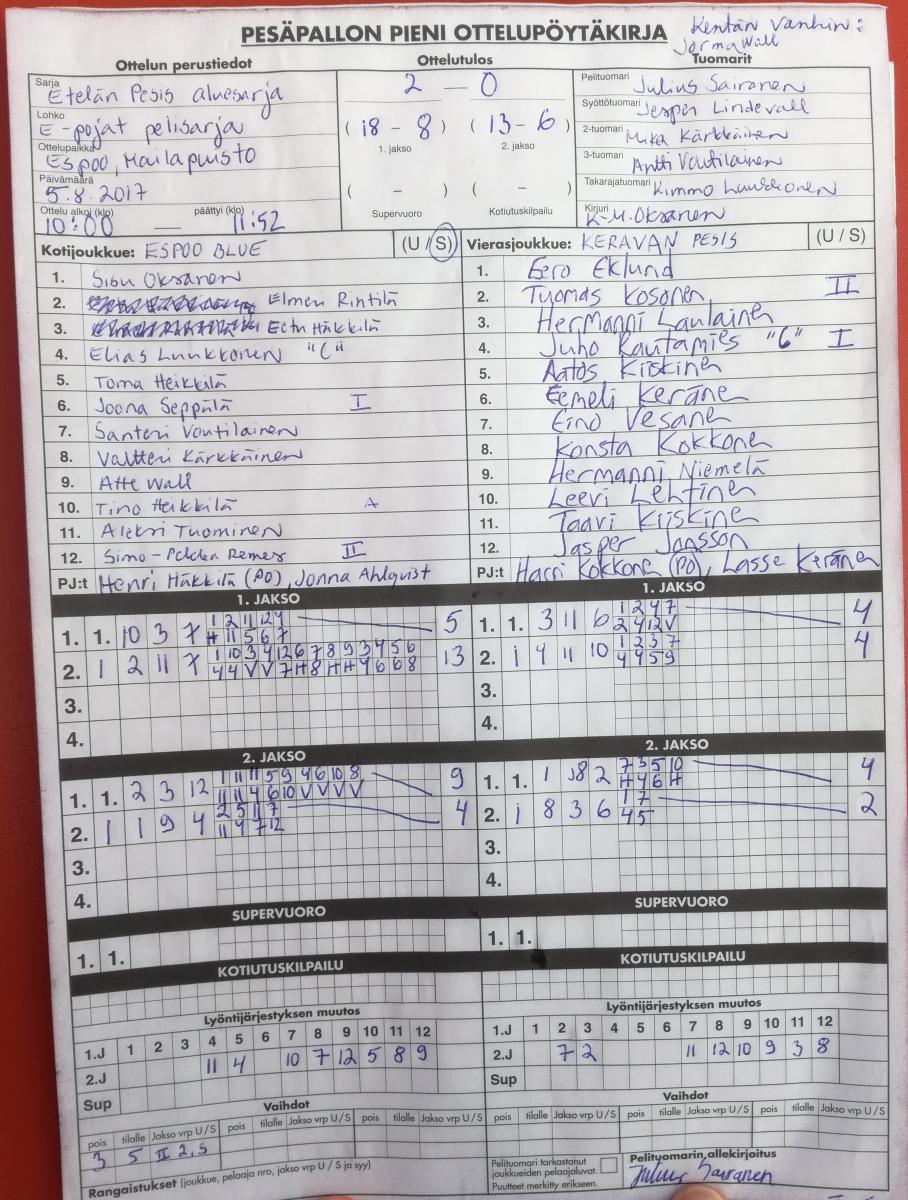 PESÄPALLON PIENI OTTELUPÖYTÄKIRJA
Kentän vanhin:
Jorma Wall
Ottelun perustiedot
Ottelutulos
Tuomarit
Sarja
Etelän Pesis aluesarja
Lohko
E-pojat pelisarja
Ottelupaikka
Espoo, Mailapuisto
Päivämäärä
5.8.2017
Ottelu alkoi (klo) päättyi (klo)
10:00 — 11:52
2 — 0
(18 - 8) (13 - 6)
1. jakso 2. jakso
( - ) ( - )
Supervuoro Kotiutuskilpailu
Pelituomari Julius Sairanen
Syöttötuomari Jesper Lindevall
2-tuomari Mika Kärkkäinen
3-tuomari Antti Voutilainen
Takarajatuomari Kimmo Luukkonen
Kirjuri K-M. Oksanen
Kotijoukkue: ESPOO BLUE (U / S)
1. Sisu Oksanen
2. Elmeri Rintilä
3. Eetu Häkkilä
4. Elias Luukkonen "C"
5. Toma Heikkilä
6. Joona Seppälä I
7. Santeri Voutilainen
8. Valtteri Kärkkäinen
9. Atte Wall
10. Tino Heikkilä A
11. Aleksi Tuominen
12. Simo-Pekka Remes II
PJ:t Henri Häkkilä (PO), Jonna Ahlqvist
Vierasjoukkue: KERAVAN PESIS (U / S)
1. Eero Eklund
2. Tuomas Kosonen II
3. Hermanni Laulainen
4. Juho Rautamies "C" I
5. Aatos Kiiskinen
6. Eemeli Keränen
7. Eino Vesanen
8. Konsta Kokkonen
9. Hermanni Niemelä
10. Leevi Lehtinen
11. Taavi Kiiskinen
12. Jasper Jansson
PJ:t Harri Kokkonen (PO), Lasse Keränen
1. JAKSO
1. 1. 10 3 7 5
2. 1 2 11 7 13
3.
4.
1. JAKSO
1. 1. 3 11 6 1 2 4 7 4
2 4 12 V
2. 1 4 11 10 1 2 3 7 4
4 4 5 9
3.
4.
2. JAKSO
1. 1. 2 3 12 1 11 11 5 9 4 6 10 8 9
11 11 4 6 10 V V V V
2. 1 1 9 4 2 5 11 7 4
11 9 7 12
3.
4.
2. JAKSO
1. 1. 1 8 2 7 3 5 10 4
H 4 6 H
2. 1 8 3 6 1 7 2
4 5
3.
4.
SUPERVUORO
1. 1.
SUPERVUORO
1. 1.
KOTIUTUSKILPAILU
KOTIUTUSKILPAILU
Lyöntijärjestyksen muutos
1.J 1 2 3 4 5 6 7 8 9 10 11 12
2.J 11 4 10 7 12 5 8 9
Sup
Lyöntijärjestyksen muutos
1.J 1 2 3 4 5 6 7 8 9 10 11 12
2.J 7 2 11 12 10 9 3 8
Sup
Vaihdot
pois tilalle Jakso vrp U / S pois tilalle Jakso vrp U / S pois tilalle Jakso vrp U / S
3 5 II 2, S
Vaihdot
pois tilalle Jakso vrp U / S pois tilalle Jakso vrp U / S pois tilalle Jakso vrp U / S
Rangaistukset (joukkue, pelaaja nro, jakso vrp U / S ja syy)
Pelituomari tarkastanut
joukkueiden pelaajaluvat.
Puutteet merkitty erikseen.
Pelituomarin allekirjoitus
Julius Sairanen